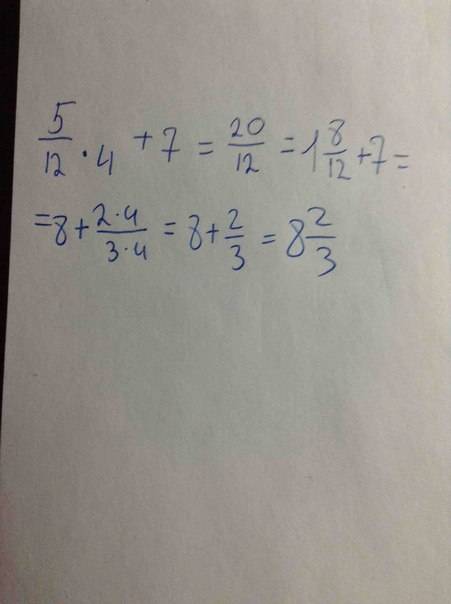 5/12 · 4 + 7 = 20/12 = 1 8/12 + 7 =
= 8 + 2·4/3·4 = 8 + 2/3 = 8 2/3